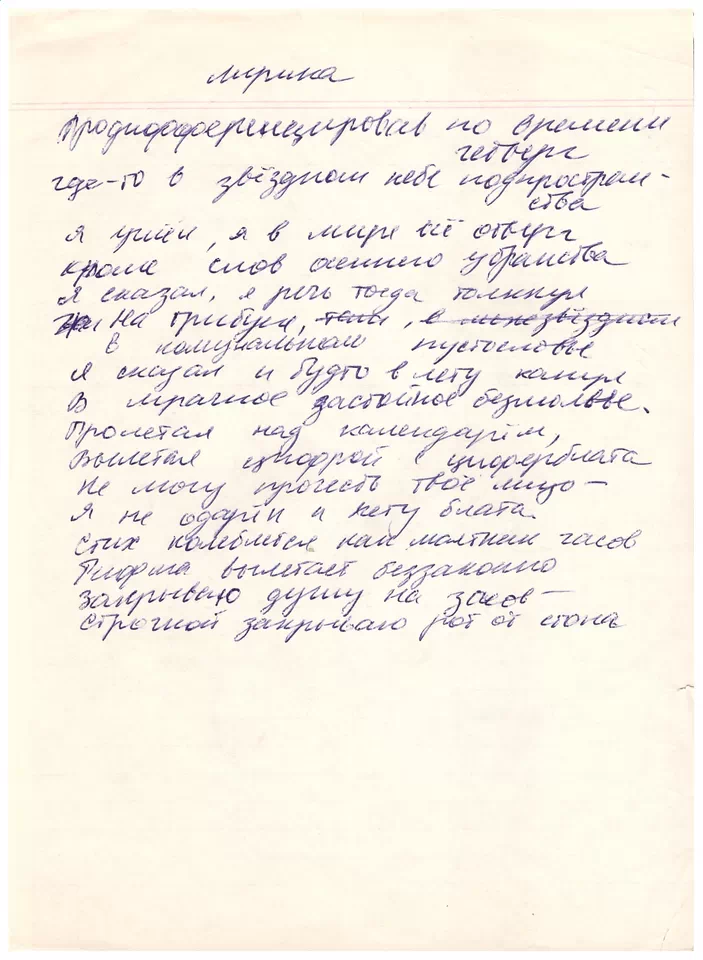 лирика
Продифференцировав по времени
четверг
где-то в звёздном небе подпростран-
ства
я ушёл, я в мире всё отверг
кроме слов осеннего убранства
Я сказал, я речь тогда толкнул
На трибуне, в межзвёздном
в комунальном пустословье
Я сказал и будто в лету канул
В мрачное застойное безмолвье.
Пролетал над календарём,
Вылетал цифрой циферблата
Не могу прочесть твоё лицо —
Я не одарён и нету блата.
Стих колеблется как маятник часов
Рифма вылетает беззаконно
Закрываю душу на засов —
Строчкой закрываю рот от стона